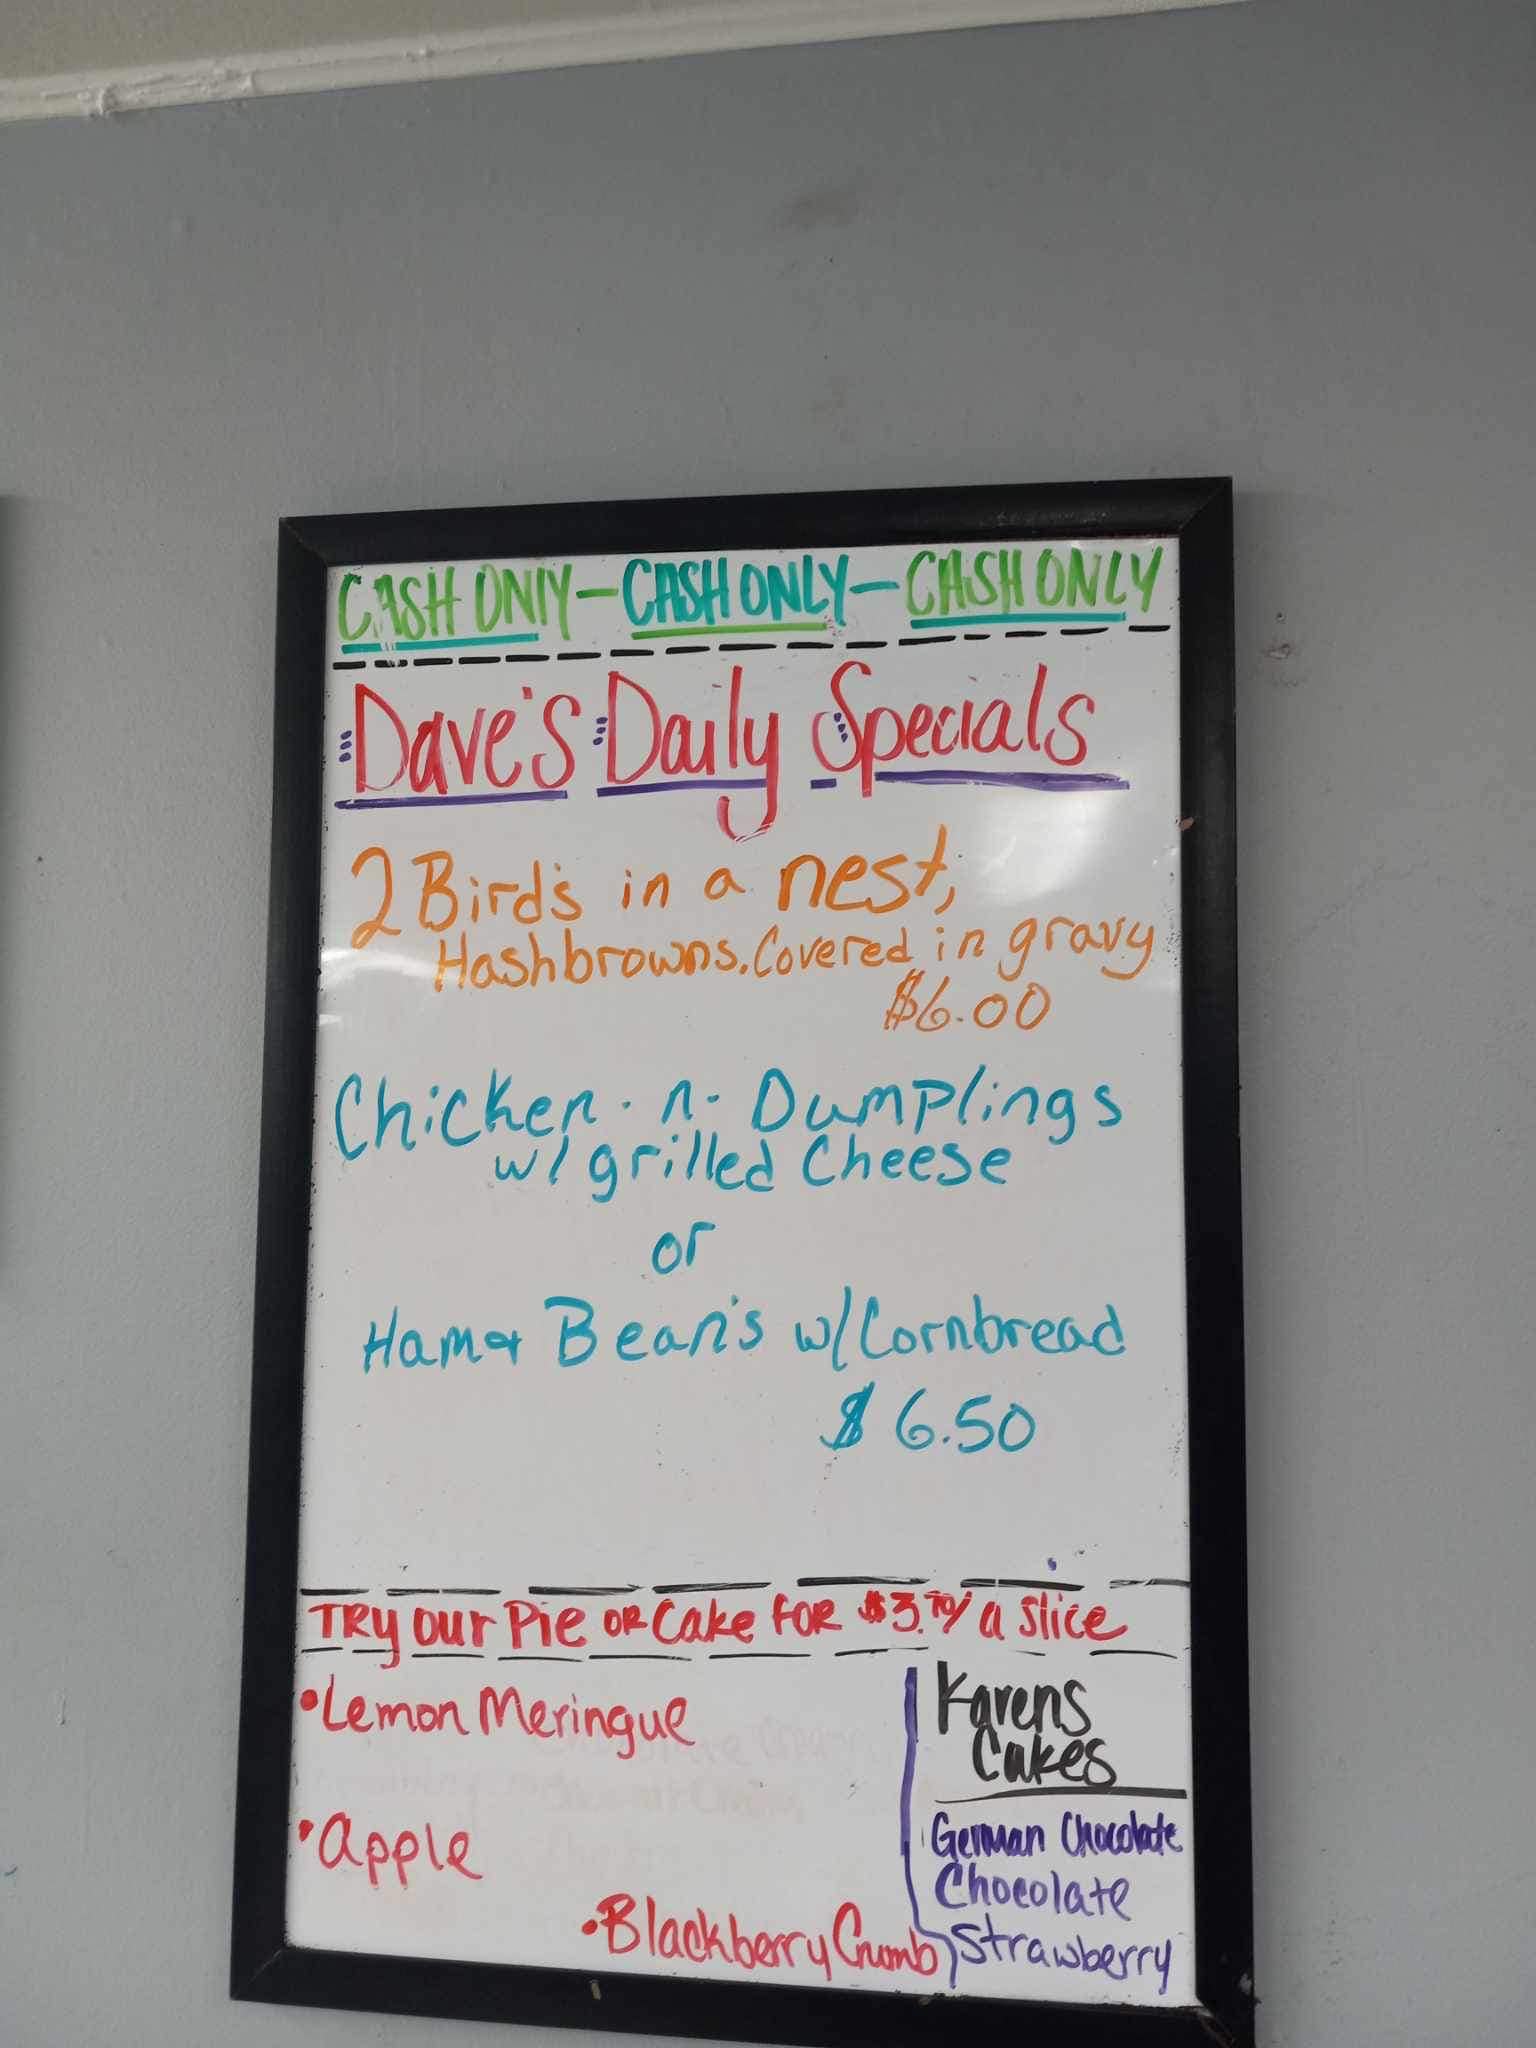 CASH ONlY – CASH ONLY – CASH ONLY
Dave's Daily Specials
2 Bird's in a nest,
Hashbrowns. Covered in gravy
$6.00
Chicken · n · Dumplings
w/ grilled Cheese
or
Ham & Bean's w/ Cornbread
$6.50
TRy our Pie oR Cake FOR $3.70/ a slice
• Lemon Meringue
• Apple
• Blackberry Crumb
Karens
Cakes
German Chocolate
Chocolate
Strawberry